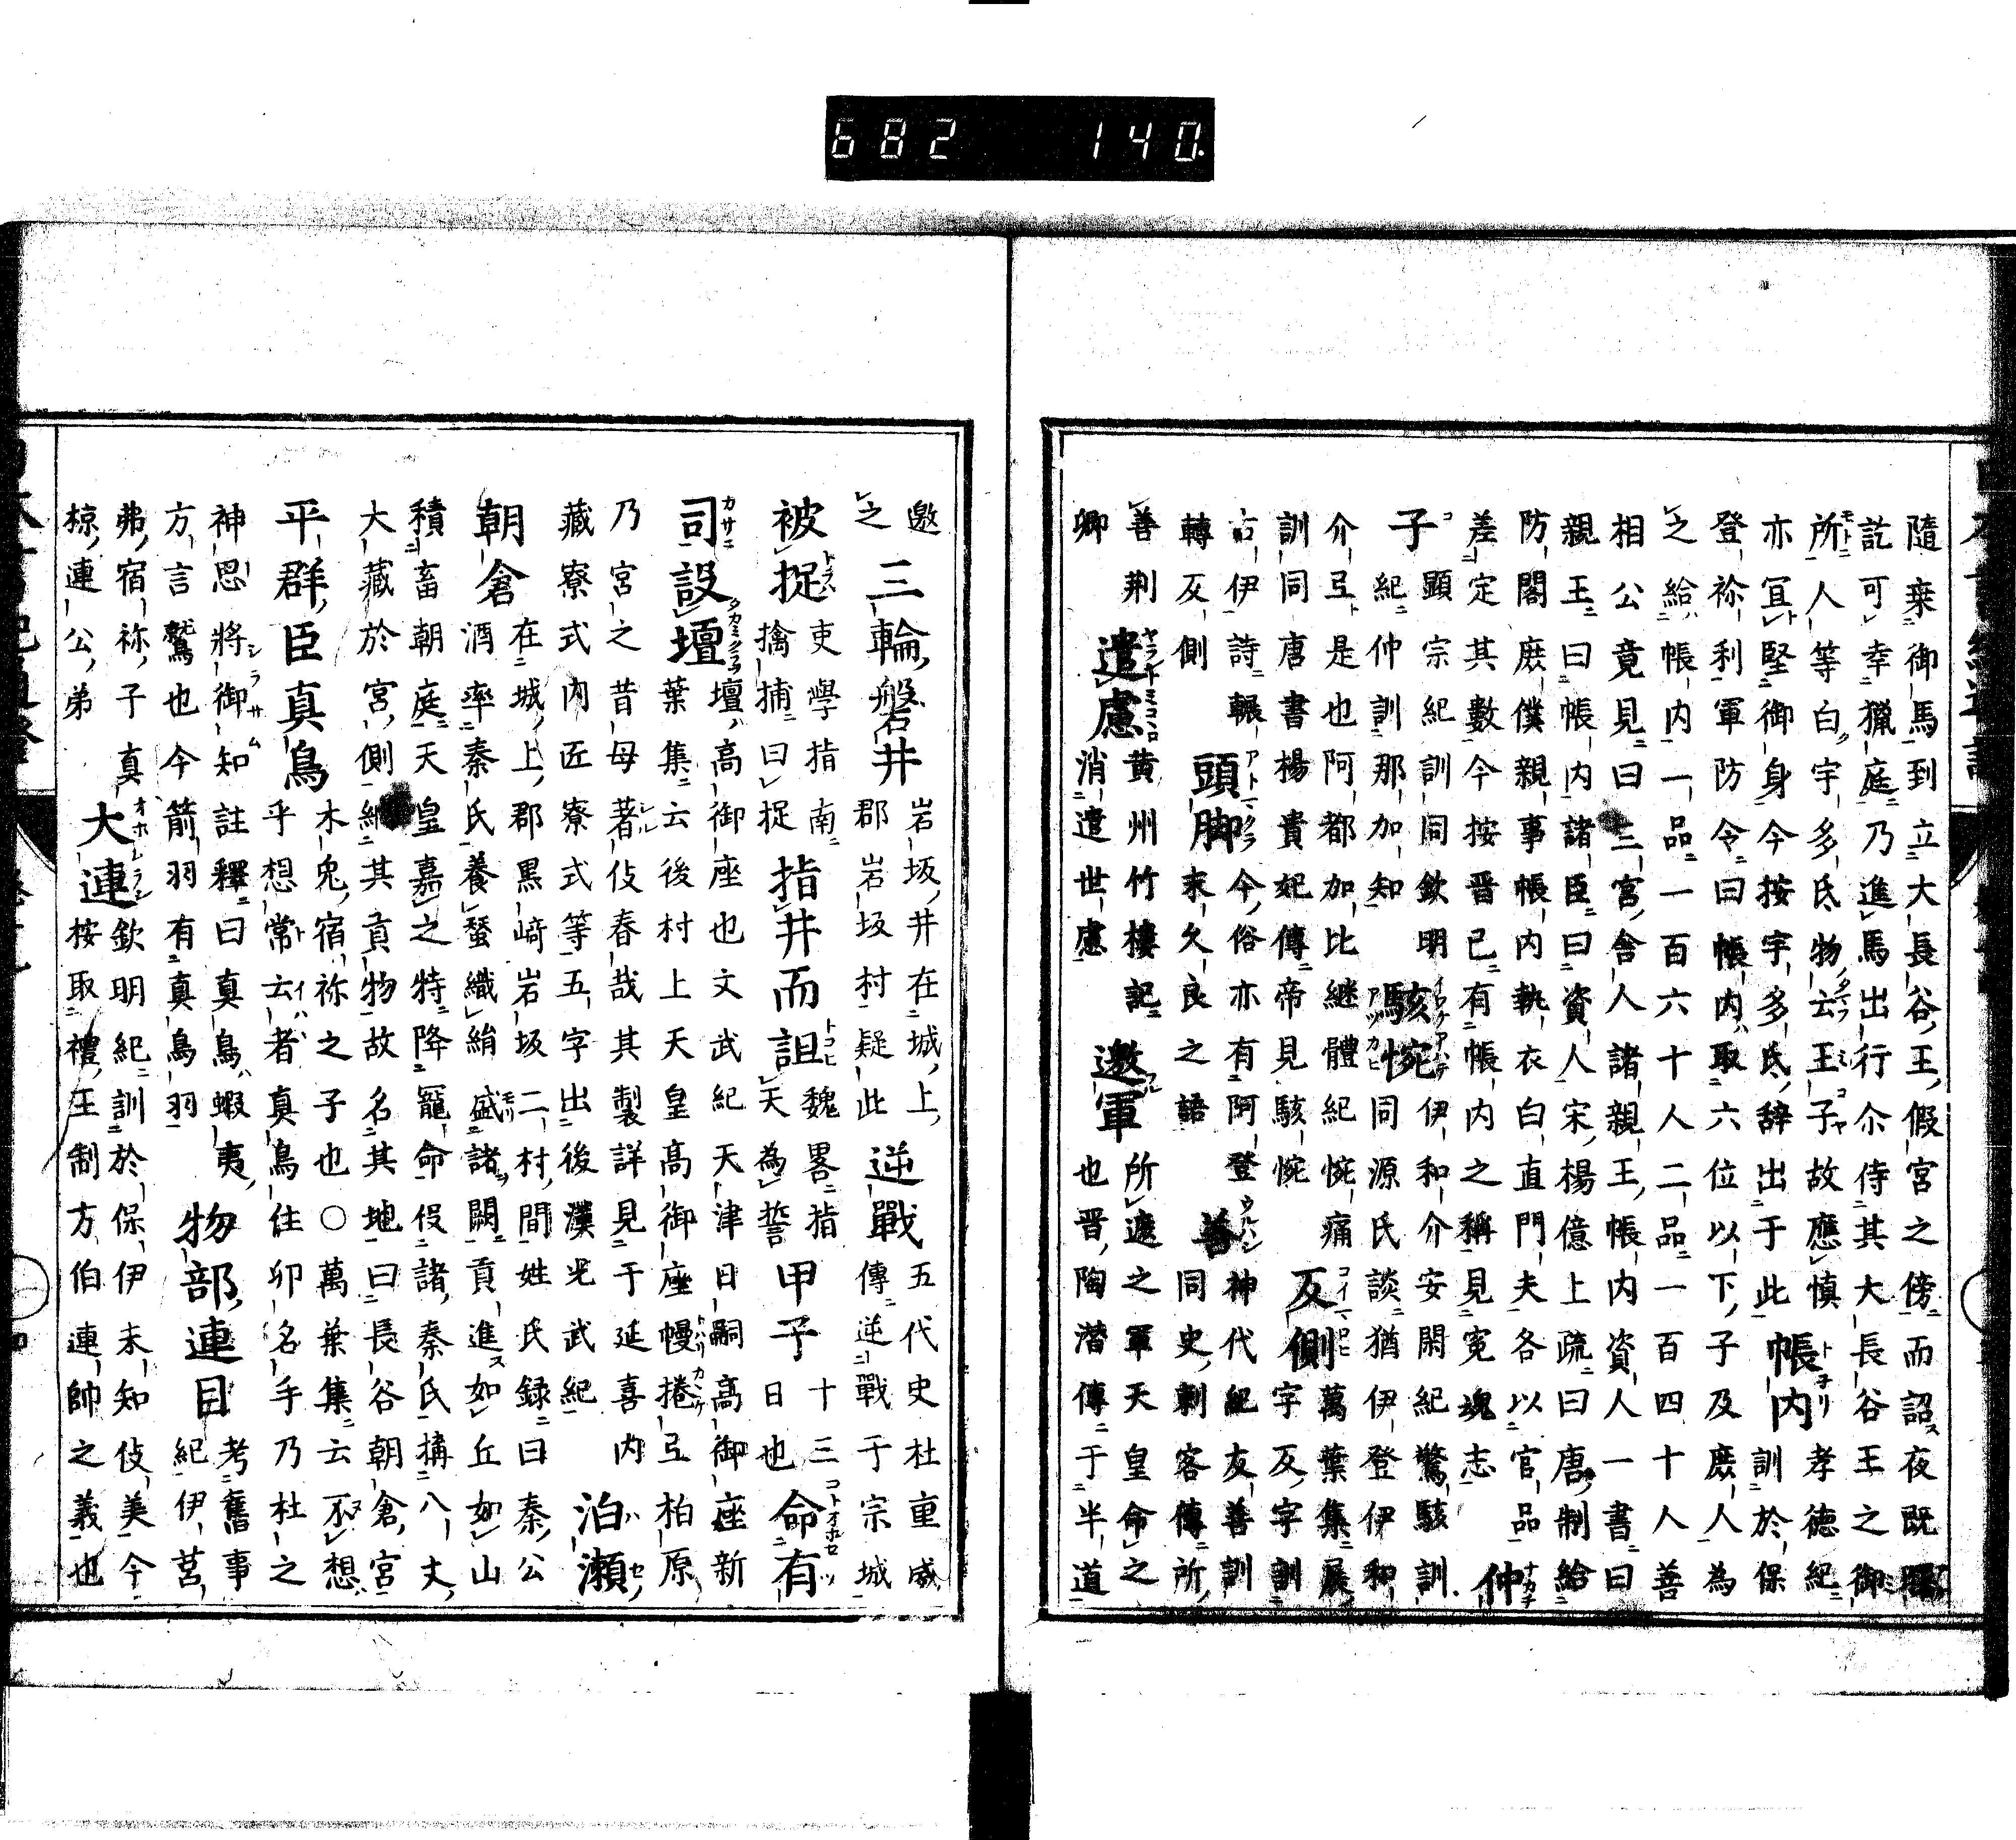 隨乗御馬到立大長谷王假宮之傍而詔夜既曙
訖可幸獵庭乃進馬出行尒侍其大長谷王之御
所人等白宇多氐物云王子故應慎
亦宜堅御身今按宇多氐辞出于此
帳内
孝徳紀
訓於保
登祢利軍防令曰帳内取六位以下子及庶人為
之給帳内一品一百六十人二品一百四十人善
相公竟見曰三宮舎人諸親王帳内資人一書曰
親王曰帳内諸臣曰資人宋楊億上疏曰唐制給
防閤庶僕親事帳内執衣白直門夫各以官品
差定其數今按晋已有帳内之稱見寃魂志
仲
子
顯宗紀訓同欽明
紀仲訓那加知
駭惋
伊和介安閑紀驚駭訓
同源氏談猶伊登伊和
介弖是也阿都加比継體紀惋痛
訓同唐書楊貴妃傳帝見駭惋
反側
萬葉集展
字反字訓
古伊詩輾
轉反側
頭脚
今俗亦有阿登
末久良之語
善
神代紀友善訓
同史刺客傳所
善荆
卿
遣慮
黄州竹樓記
消遣世慮
邀軍
所遮之軍天皇命之
也晋陶潜傳于半道
邀
之
三輪磐井
岩坂井在城上
郡岩坂村疑此
逆戰
五代史杜重威
傳逆戰于宗城
被捉
吏學指南
擒捕曰捉
指井而詛
魏畧指
天為誓
甲子
十三
日也
命有
司設壇
壇高御座也文武紀天津日嗣高御座新
葉集云後村上天皇高御座幔捲弖柏原
乃宮之昔母著伎春哉其製詳見于延喜内
藏寮式内匠寮式等五字出後漢光武紀
泊瀬
朝倉
在城上郡黒﨑岩坂二村間姓氏録曰秦公
酒率秦氏養蚕織絹盛諸闕貢進如丘如山
積畜朝庭天皇嘉之特降寵命役諸秦氏搆八丈
大藏於宮側納其貢物故名其地曰長谷朝倉宮
平群臣真鳥
木兎宿祢之子也○萬葉集云不想
乎想常云者真鳥住卯名手乃杜之
神思將御知註釋曰真鳥蝦夷
方言鷲也今箭羽有真鳥羽
物部連目
考舊事
紀伊莒
弗宿祢子真
椋連公弟
大連
欽明紀訓於保伊末知伎美今
按取禮王制方伯連帥之義也
682 140